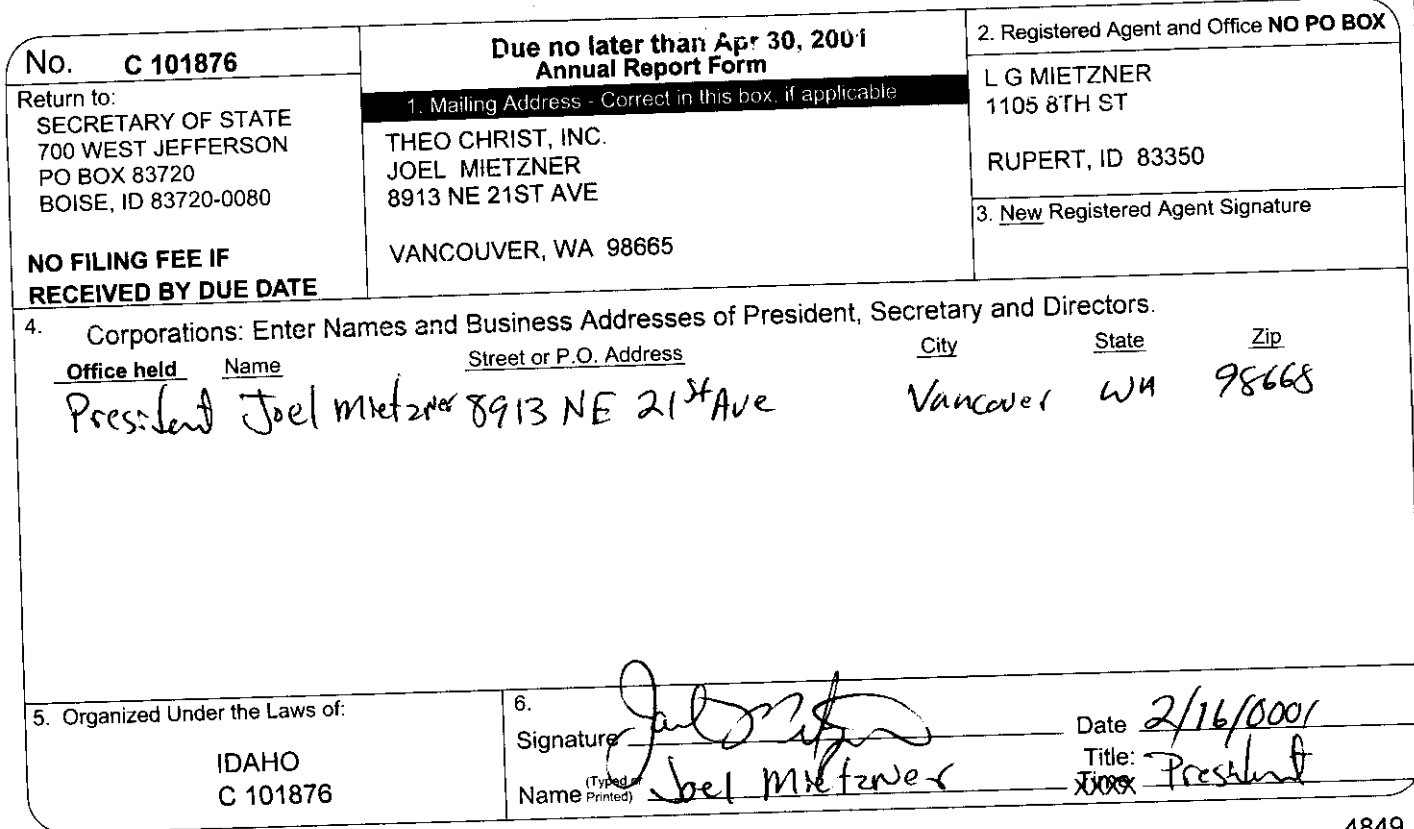 No. C 101876
Return to:
SECRETARY OF STATE
700 WEST JEFFERSON
PO BOX 83720
BOISE, ID 83720-0080
NO FILING FEE IF
RECEIVED BY DUE DATE
Due no later than Apr 30, 2001
Annual Report Form
1. Mailing Address - Correct in this box, if applicable
THEO CHRIST, INC.
JOEL MIETZNER
8913 NE 21ST AVE
VANCOUVER, WA 98665
2. Registered Agent and Office NO PO BOX
L G MIETZNER
1105 8TH ST
RUPERT, ID 83350
3. New Registered Agent Signature
4. Corporations: Enter Names and Business Addresses of President, Secretary and Directors.
Office held Name Street or P.O. Address City State Zip
President Joel Mietzner 8913 NE 21st Ave Vancover WA 98668
5. Organized Under the Laws of:
IDAHO
C 101876
6.
Signature
Date 2/16/0001
Name (Typed or Printed) Joel Mietzner
Title: President
4849